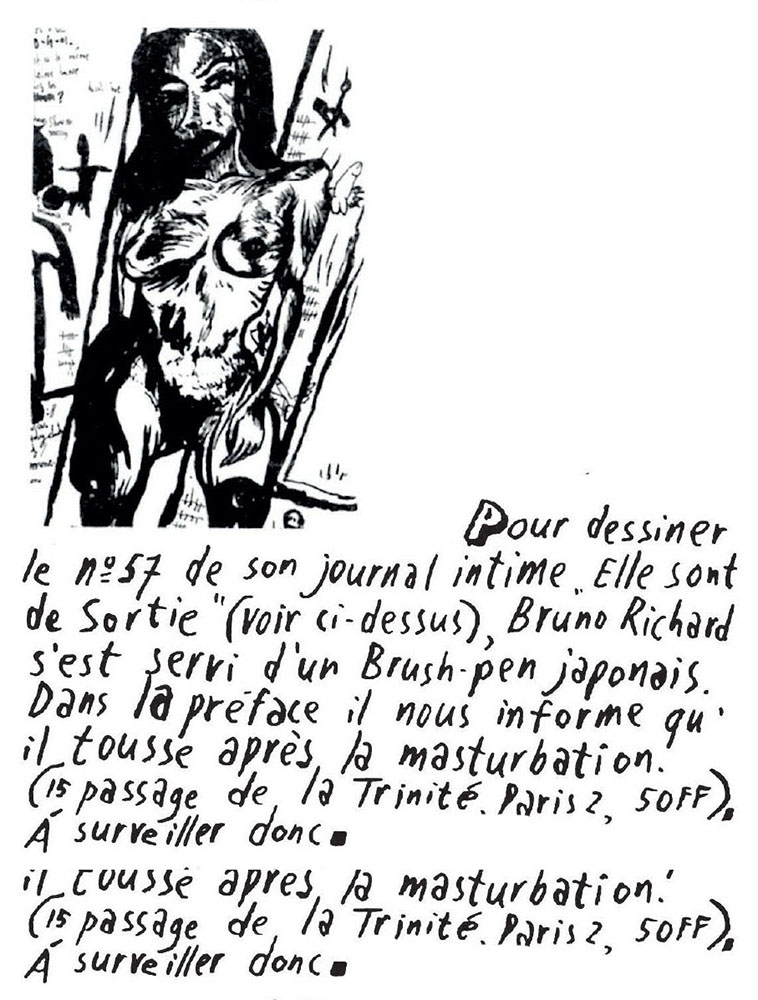 D-G-M.
2
Pour dessiner
le nº57 de son journal intime „Elle sont
de Sortie" (voir ci-dessus), Bruno Richard
s'est servi d'un Brush-pen japonais.
Dans la préface il nous informe qu'
il tousse après la masturbation.
(15 passage de la Trinité. Paris 2, 50FF).
Á surveiller donc.
il tousse apres la masturbation.'
(15 passage de la Trinité. Paris 2, 50FF).
Á surveiller donc.